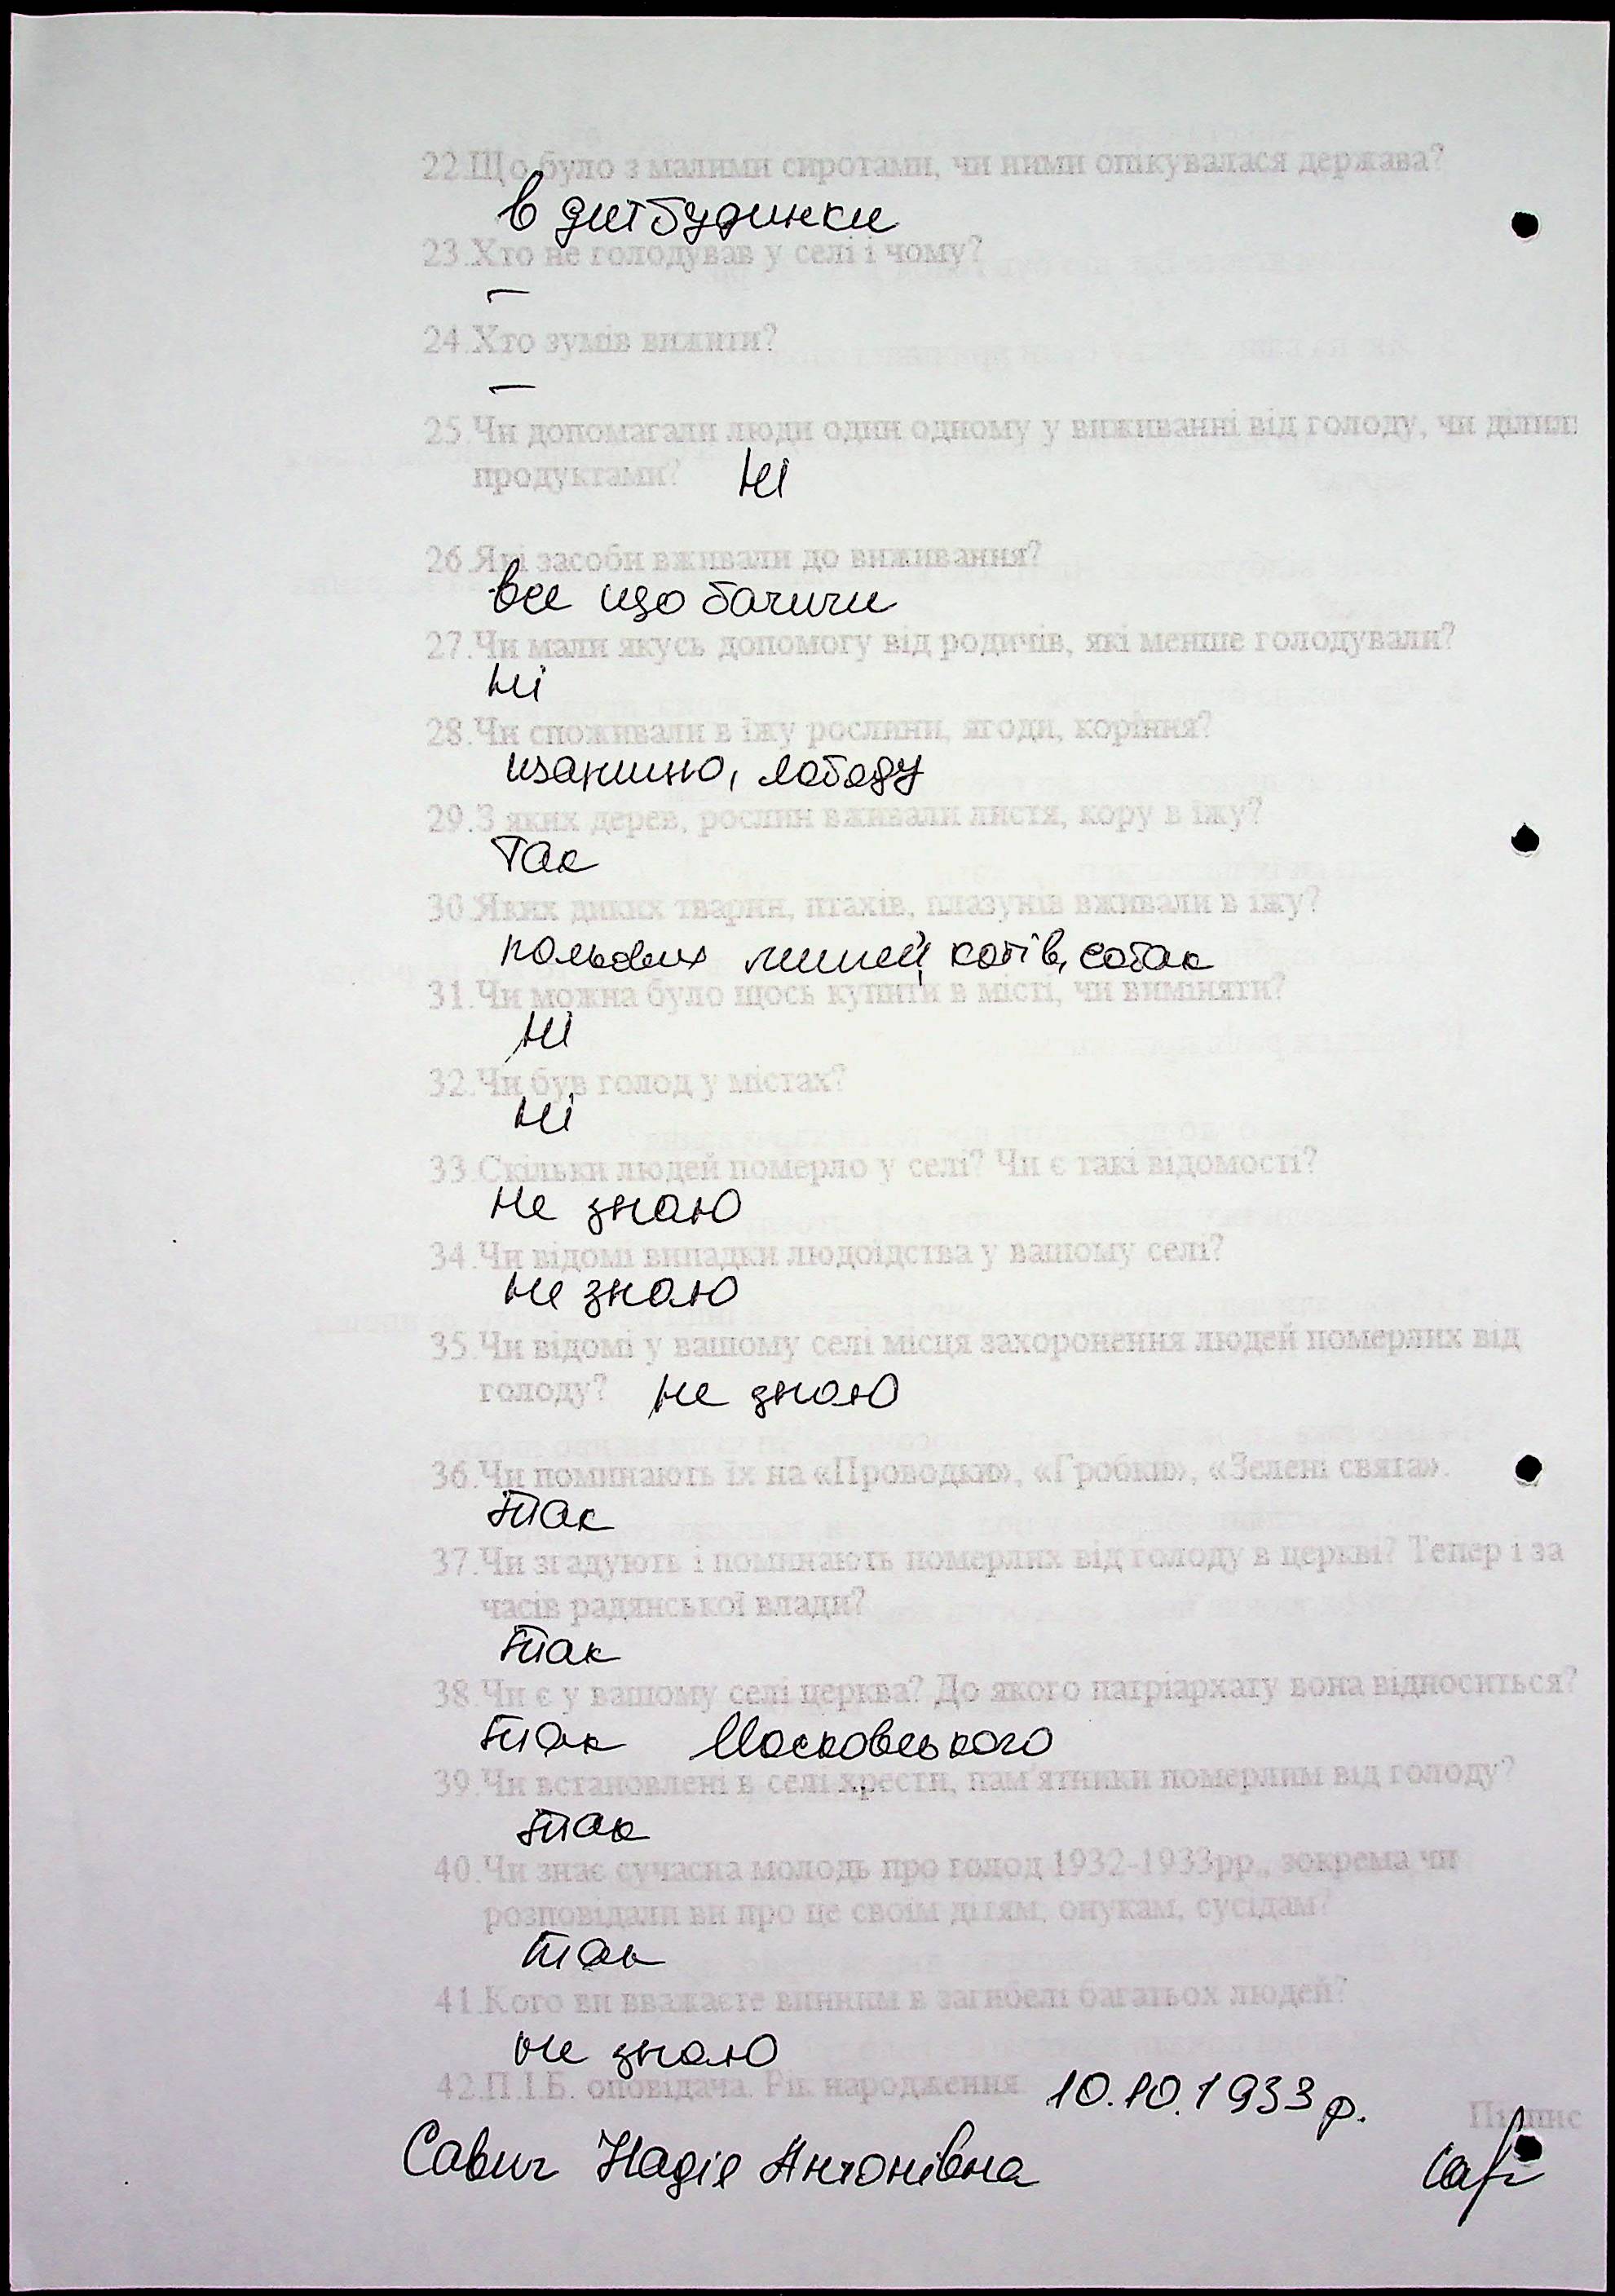 22.Що було з малими сиротами, чи ними опікувалася держава?
в дитбудинки
23.Хто не голодував у селі і чому?
–
24.Хто зумів вижити?
–
25.Чи допомагали люди один одному у виживанні від голоду, чи ділили
продуктами? Ні
26.Які засоби вживали до виживання?
все що бачили
27.Чи мали якусь допомогу від родичів, які менше голодували?
Ні
28.Чи споживали в їжу рослини, ягоди, коріння?
лободу
29.З яких дерев, рослин вживали листя, кору в їжу?
Так
30.Яких диких тварин, птахів, плазунів вживали в їжу?
польових мишей, котів, собак
31.Чи можна було щось купити в місті, чи виміняти?
Ні
32.Чи був голод у містах?
Ні
33.Скільки людей померло у селі? Чи є такі відомості?
Не знаю
34.Чи відомі випадки людоїдства у вашому селі?
не знаю
35.Чи відомі у вашому селі місця захоронення людей померлих від
голоду? не знаю
36.Чи поминають їх на «Проводки», «Гробки», «Зелені свята».
так
37.Чи згадують і поминають померлих від голоду в церкві? Тепер і за
часів радянської влади?
так
38.Чи є у вашому селі церква? До якого патріархату вона відноситься?
так Московського
39.Чи встановлені в селі хрести, пам'ятники померлим від голоду?
так
40.Чи знає сучасна молодь про голод 1932-1933рр., зокрема чи
розповідали ви про це своїм дітям, онукам, сусідам?
так
41.Кого ви вважаєте винним в загибелі багатьох людей?
не знаю
42.П.І.Б. оповідача. Рік народження 10.10.1933 р.
Підпис
Савич Надія Антонівна